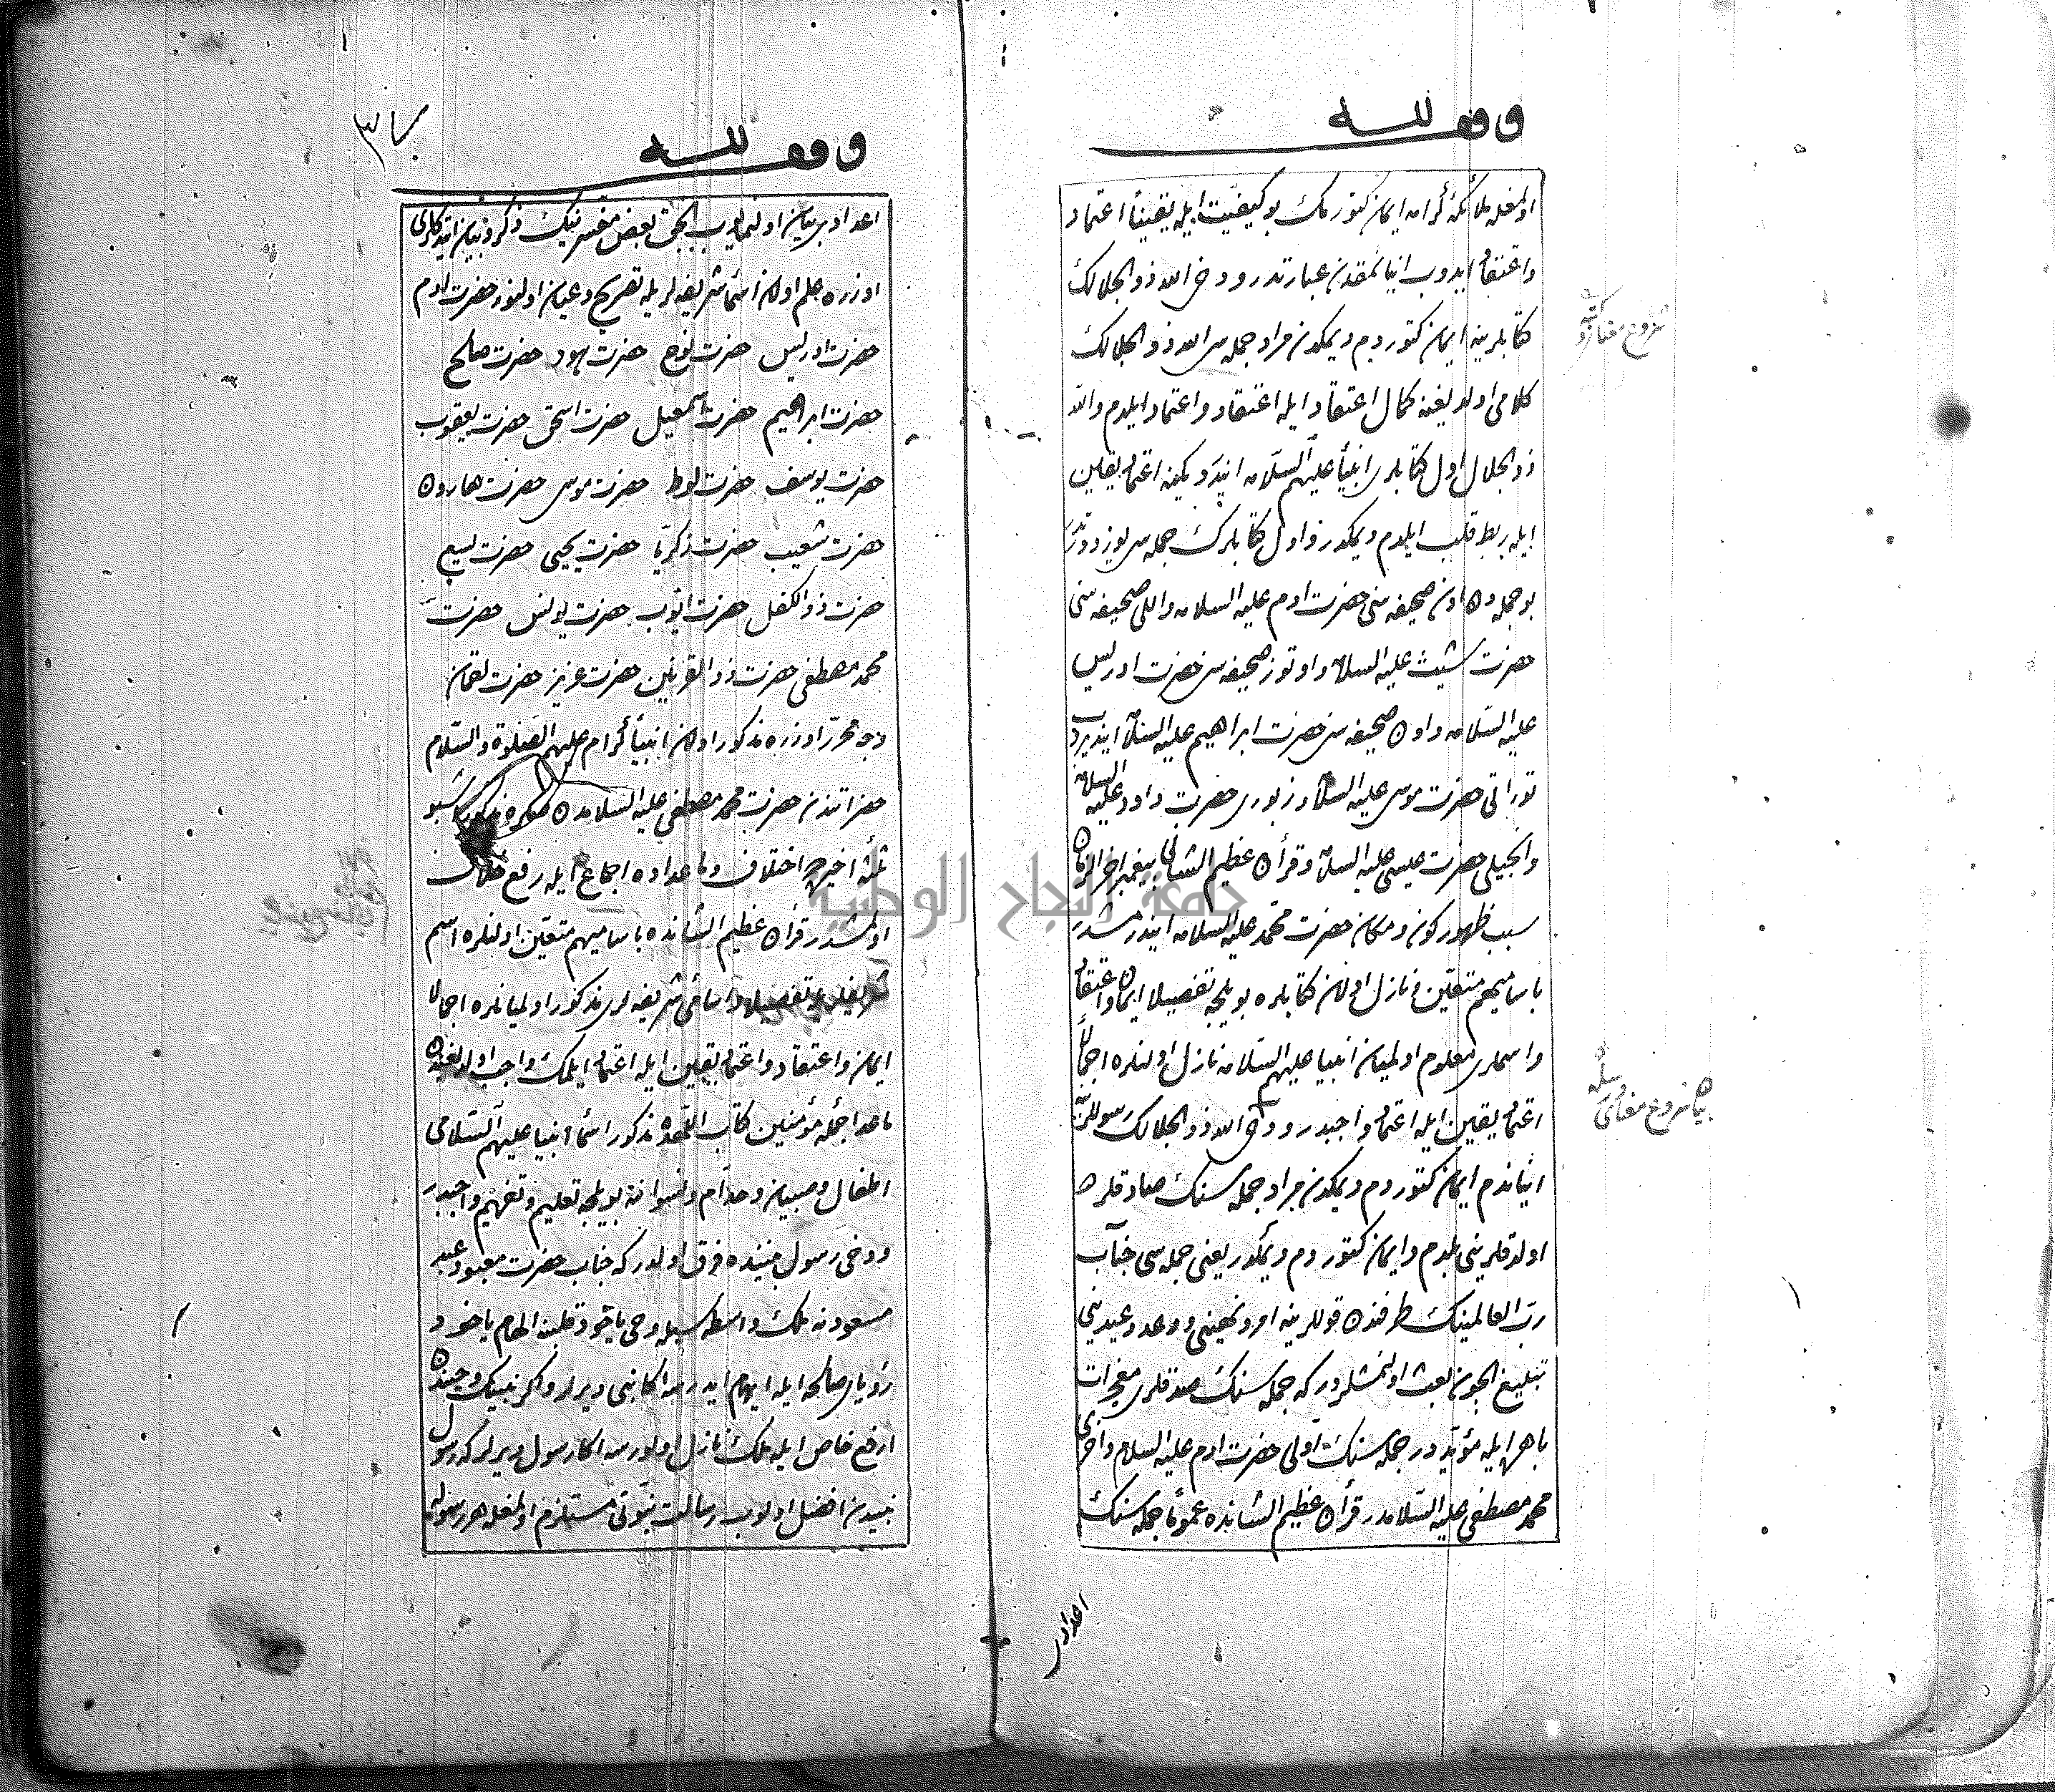 وقف لله
اولمغله ملائكهٔ كرامه ايمان كتورمك بو كيفيت ايله يقينا اعتماد
واعتقاد ايدوب اينانمقدن عبارتدر ودخى الله ذو الجلالك
كتابلرينه ايمان كتوردم ديمكدن مراد جمله سى الله ذو الجلالك
كلامى اولديغنه كمال اعتقاد ايله اعتقاد واعتماد ايلدم والله
ذو الجلال اول كتابلرى انبيأ عليهم السلامه انديردوكينه اعتماد يقين
ايله ربط قلب ايلدم ديمكدر واول كتابلرك جمله سى يوز درتدر
بو جمله دن اون صحيفه سنى حضرت ادم عليه السلامه واللى صحيفه سنى
حضرت شيث عليه السلامه واوتوز صحيفه سى حضرت ادريس
عليه السلامه واون صحيفه سى حضرت ابراهيم عليه السلامه اينديروب
توراتى حضرت موسى عليه السلامه وزبورى حضرت داود عليه السلامه
وانجيلى حضرت عيسى عليه السلامه وقرأن عظيم الشانى پيغمبر اخر الزمان
سبب ظهور كون ومكان حضرت محمد عليه السلامه اينديرمشدر
باساميهم متعين ونازل اولان كتابلره بويلجه تفصيلا ايمان واعتقاد
واسملرى معلوم اولميان انبيا عليهم السلامه نازل اولنلره اجمالا
اعتماد يقين ايله اعتماد واجبدر ودخى الله ذو الجلالك رسوللرينه
ايناندم ايمان كتوردم ديمكدن مراد جمله سنك صادقلر
اولدقلرينى بلدم وايمان كتوردم ديمكدر يعنى جمله سى جناب
رب العالمينك طرفندن قوللرينه امر ونهينى ووعد وعيدينى
تبليغ ايچون بعث اولنمشلردر كه جمله سنك صدقلرى معجزات
باهره ايله مؤيددر جمله سنك اولى حضرت ادم عليه السلام واخرى
محمد مصطفى عليه السلامدر قرأن عظيم الشانده عموما جمله سنك
اعداد
وقف لله
٣٧
اعدادى بيان اولنمايوب انجق بعض مفسرينك ذكر وبيان ايتدكلرى
اوزره علم اولان اسماء شريفه لريله تصريح وعيان اولنور حضرت ادم
حضرت ادريس حضرت نوح حضرت هود حضرت صالح
حضرت ابراهيم حضرت اسمعيل حضرت اسحق حضرت يعقوب
حضرت يوسف حضرت لوط حضرت موسى حضرت هارون
حضرت شعيب حضرت زكريا حضرت يحيى حضرت يسع
حضرت ذو الكفل حضرت ايوب حضرت يونس حضرت
محمد مصطفى حضرت ذو القرنين حضرت عزير حضرت لقمان
وجه محرر اوزره مذكور اولان انبيأ كرام عليهم الصلوة والسلام
حضراتندن حضرت محمد مصطفى عليه السلامدن صكره
ثلثهٔ اخيره اختلاف وماعداده اجماع ايله رفع خلاف
اولنمشدر قرأن عظيم الشانده باساميهم متعين اولنلره اسم
شريفلريله تفصيلا واسامئ شريفه لرى مذكور اولميانلره اجمالا
ايمان واعتقاد واعتماد يقين ايله اعتماد ايلمك واجب اولديغندن
ماعدا جملهٔ مؤمنين كتاب اللهده مذكور اسماء انبيا عليهم السلامى
اطفال وصبيان وخدام ونسوانه بويلجه تعليم وتفهيم واجبدر
ودخى رسول بيننده فرق اولدر كه جناب حضرت معبود عبد
مسعودنه ملك واسطه سيله وحى ياخود قلبنه الهام ياخود
رؤياى صالحه ايله ايهام ايدرسه اكا نبى ديرلر واكر نبينك وحيندن
ارفع خاص ايله ملك نازل اولورسه اكا رسول ديرلر كه رسول
نبيدن افضل اولوب رسالت نبوتى مستلزم اولمغله هر رسول